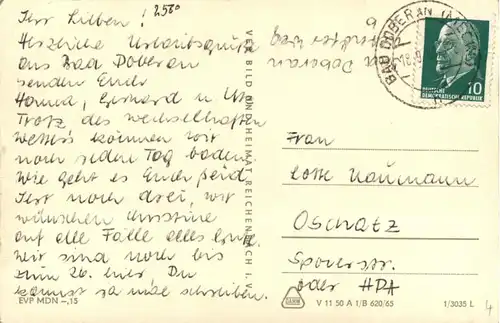 Ihr Lieben! 2560
Herzliche Urlaubsgrüße
aus Bad Doberan
senden Euch
Hanna, Gerhard u. Ute
Trotz des wechselhaften
Wetters können wir
noch jeden Tag baden
Wie geht es Euch, seid
Ihr noch drei, wir
wünschen Christine
auf alle Fälle alles Gute.
Wir sind noch bis
zum 26. hier. Du
kannst ja mal schreiben.
EVP MDN –.15
VEB BILD UND HEIMAT REICHENBACH I. V.
Bad Doberan
6
BAD DOBERAN (MECKL)
DEUTSCHE
DEMOKRATISCHE REPUBLIK
10
Frau
Lotte Naumann
Oschatz
Sporerstr.
oder HPA
V 11 50 A 1/B 620/65
1/3035 L
4